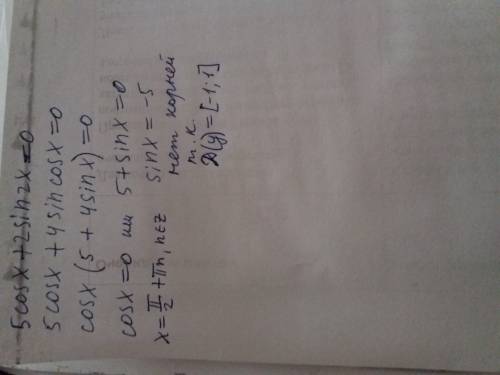 5cosx+2sin2x=0
5cosx + 4sincosx=0
cosx(5+4sinx)=0
cosx=0 или 5+sinx=0
x=π/2+πn, n∈z sinx=-5
нет корней
т.к.
D(y)=[-1;1]